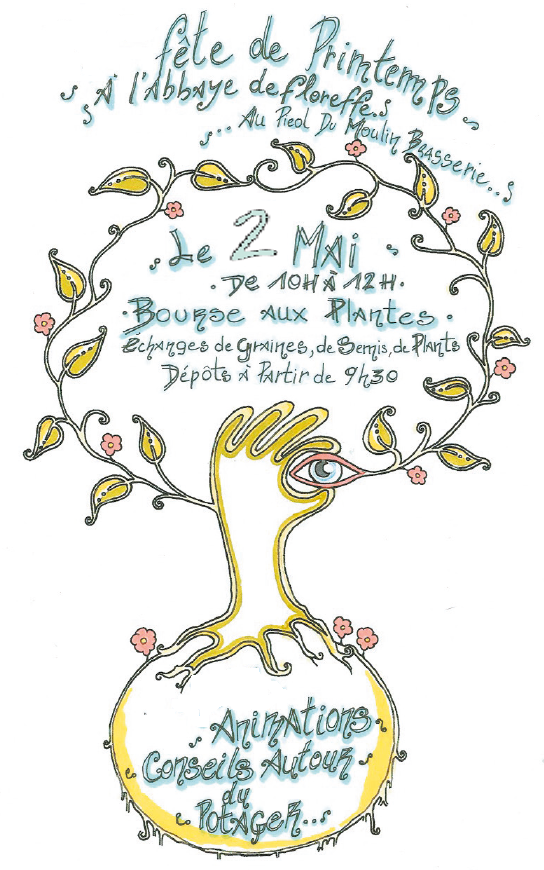 fête de Printemps
A l'Abbaye de floreffe.
... Au Pied Du Moulin Brasserie...
Le 2 Mai
. De 10H à 12H.
. Bourse aux Plantes .
Echanges de Graines, de Semis, de Plants
Dépôts à Partir de 9h30
Animations,
Conseils Autour
du
Potager...